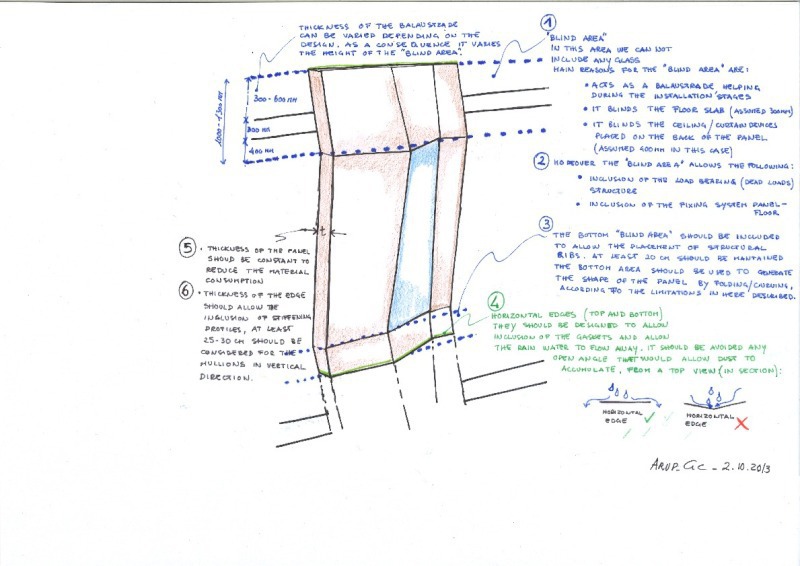 THICKNESS OF THE BALAUSTRADE
CAN BE VARIED DEPENDING ON THE
DESIGN. AS A CONSEQUENCE IT VARIES
THE HEIGHT OF THE "BLIND AREA".
1000-1300 MM
300-600 MM
300 MM
400 MM
1
"BLIND AREA"
IN THIS AREA WE CAN NOT
INCLUDE ANY GLASS
MAIN REASONS FOR THE "BLIND AREA" ARE:
• ACTS AS A BALAUSTRADE HELPING
DURING THE INSTALLATION STAGES
• IT BLINDS THE FLOOR SLAB (ASSUMED 300MM)
• IT BLINDS THE CEILING/CURTAIN DEVICES
PLACED ON THE BACK OF THE PANEL
(ASSUMED 400MM IN THIS CASE)
2 MOREOVER THE "BLIND AREA" ALLOWS THE FOLLOWING:
• INCLUSION OF THE LOAD BEARING (DEAD LOADS)
STRUCTURE
• INCLUSION OF THE FIXING SYSTEM PANEL-
FLOOR
3
THE BOTTOM "BLIND AREA" SHOULD BE INCLUDED
TO ALLOW THE PLACEMENT OF STRUCTURAL
RIBS. AT LEAST 20 CM SHOULD BE MANTAINED
THE BOTTOM AREA SHOULD BE USED TO GENERATE
THE SHAPE OF THE PANEL BY FOLDING/CURVING,
ACCORDING TO THE LIMITATIONS IN HERE DESCRIBED.
4
HORIZONTAL EDGES (TOP AND BOTTOM)
THEY SHOULD BE DESIGNED TO ALLOW
INCLUSION OF THE GASKETS AND ALLOW
THE RAIN WATER TO FLOW AWAY. IT SHOULD BE AVOIDED ANY
OPEN ANGLE THAT WOULD ALLOW DUST TO
ACCUMULATE, FROM A TOP VIEW (IN SECTION):
HORIZONTAL
EDGE
HORIZONTAL
EDGE
t
5 • THICKNESS OF THE PANEL
SHOULD BE CONSTANT TO
REDUCE THE MATERIAL
CONSUMPTION
6 • THICKNESS OF THE EDGE
SHOULD ALLOW THE
INCLUSION OF STIFFENING
PROFILES, AT LEAST
25-30 CM SHOULD BE
CONSIDERED FOR THE
MULLIONS IN VERTICAL
DIRECTION.
ARUP_GC_2.10.2013